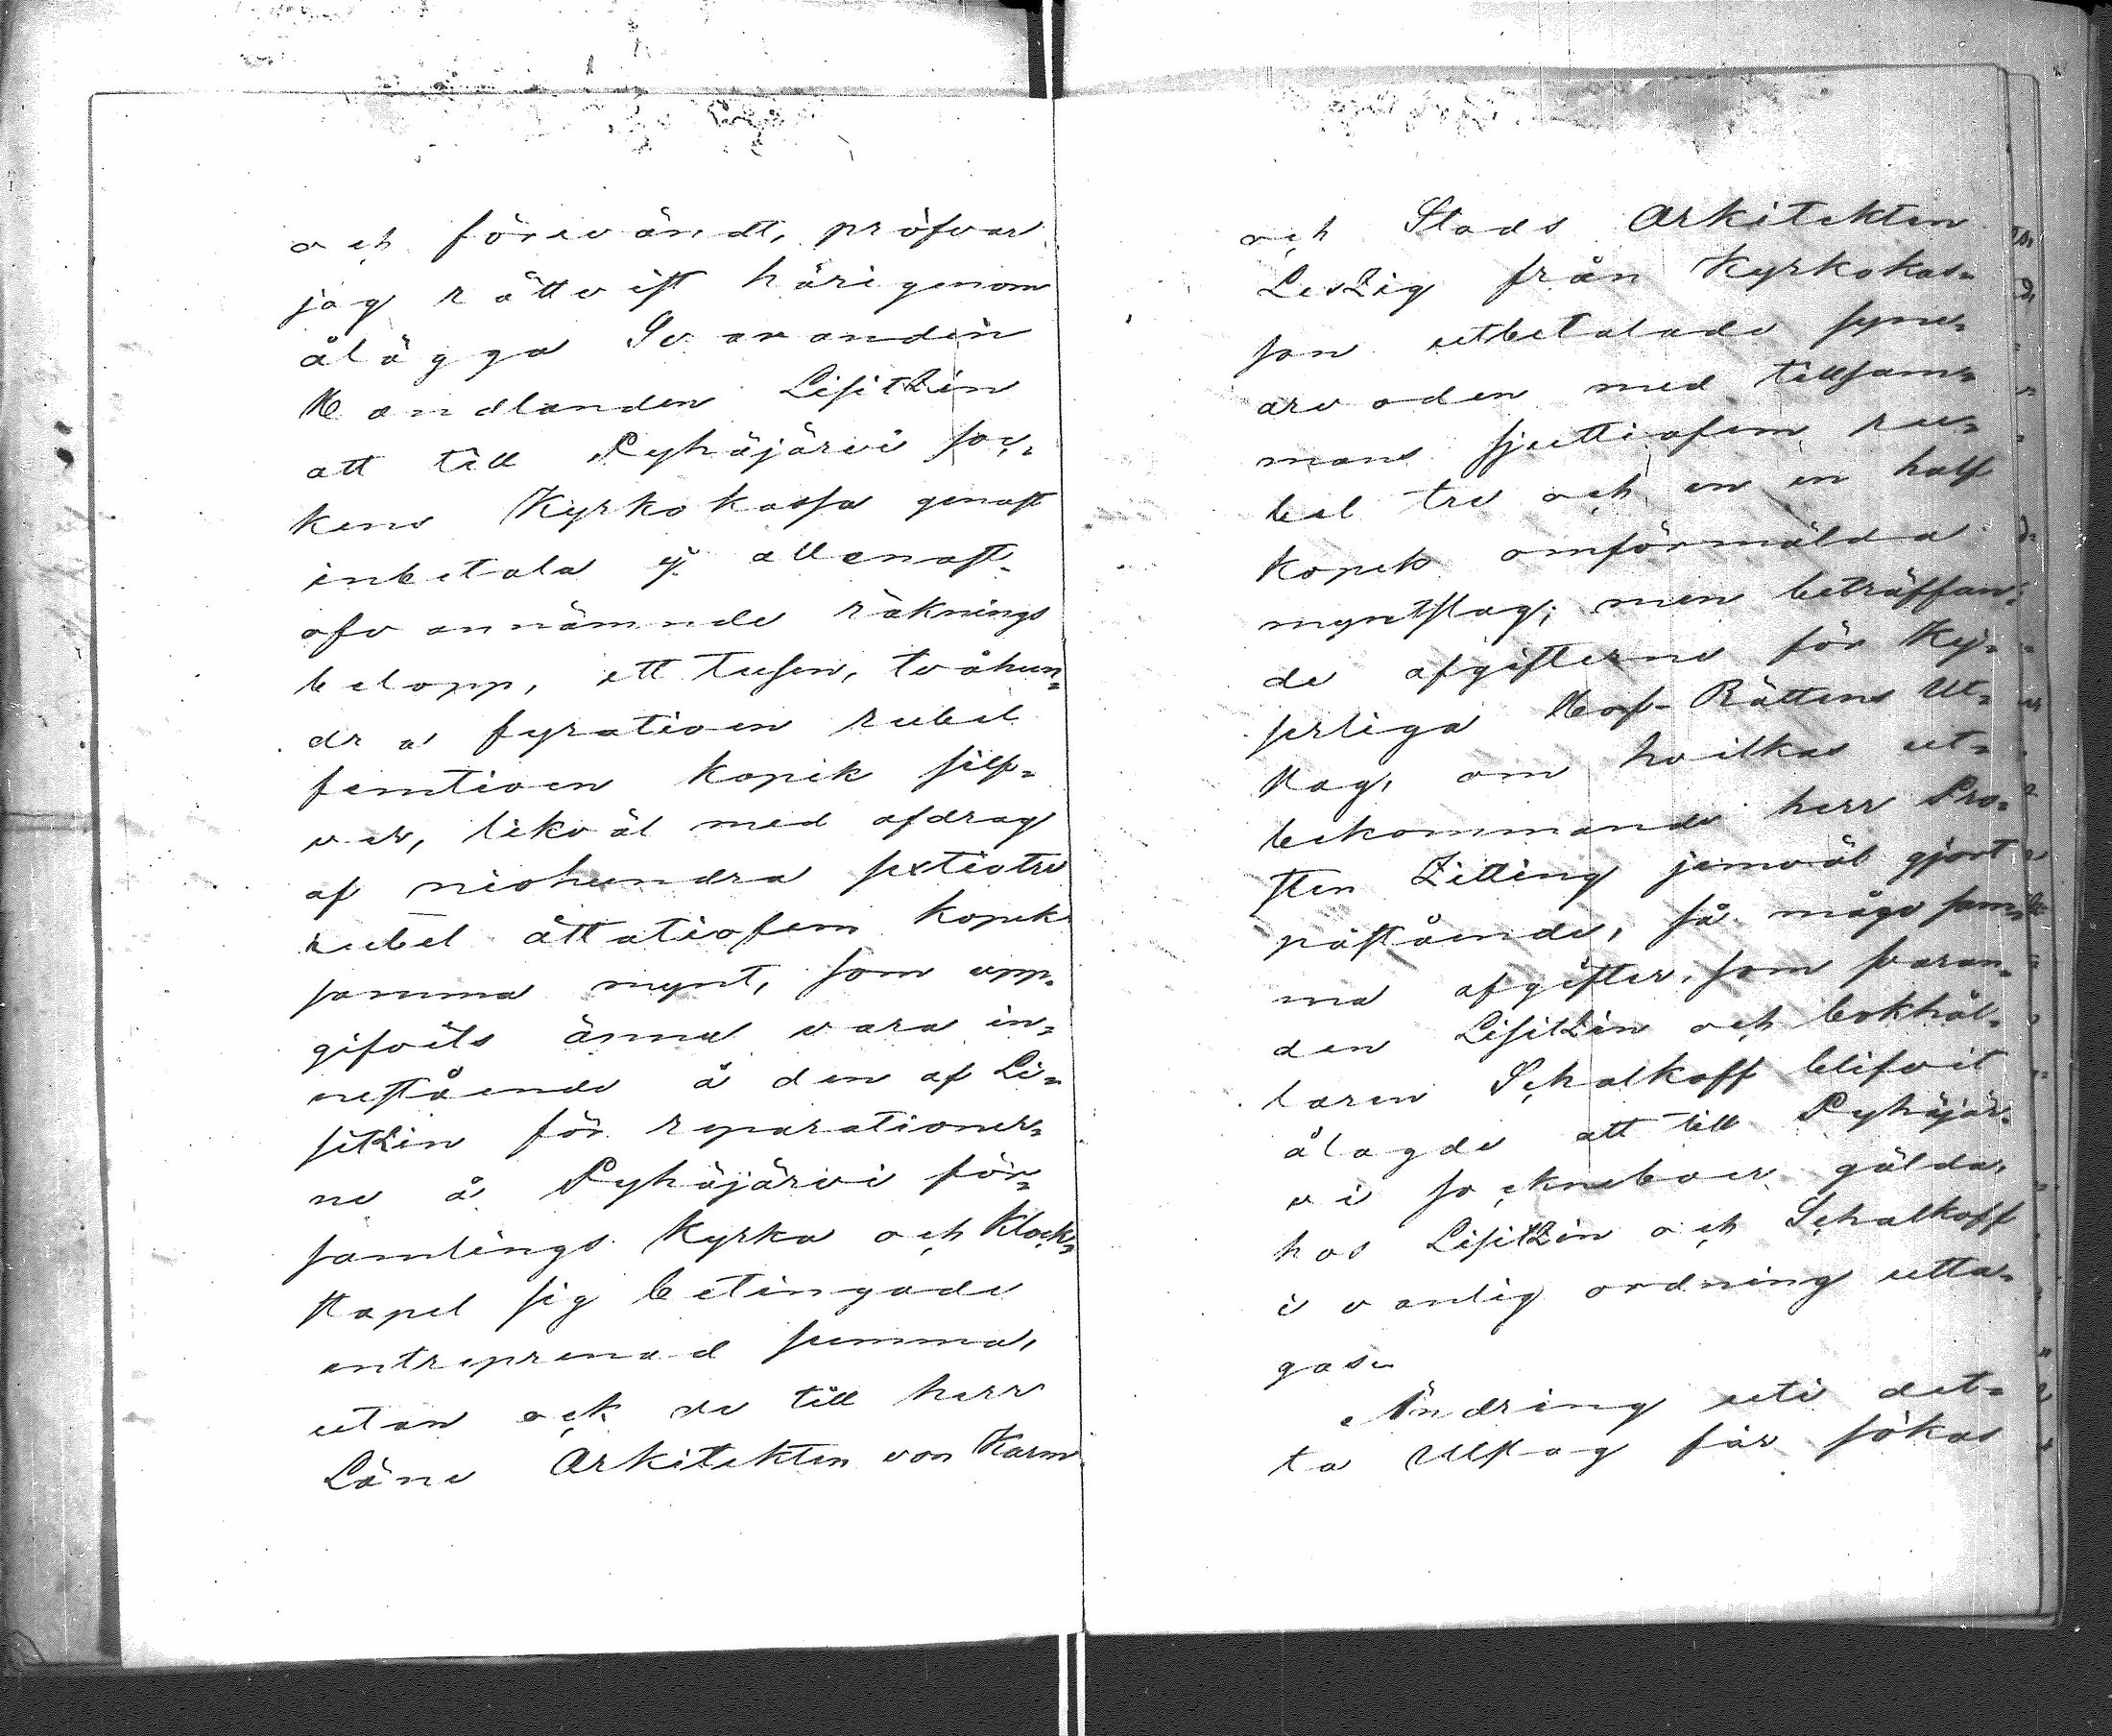 och förevändt, pröfvar
jag rättvist härigenom
ålägga Svaranden
Handlanden Lisitzin
att till Pyhäjärvi soc¬
kens Kyrkokassa genast
inbetala ej allenast
ofvannämnde räknings
belopp, ett tusen, tvåhun¬
dra fyratioen rubel
femtioen kopek silf¬
ver, likväl med afdrag
af niohundra sextiotre
rubel åttatiofem kopek
samma mynt, som upp¬
gifvits ännu vara in¬
nestående å den af Li¬
sitzin för reparationer¬
ne å Pyhäjärvi för¬
samlings Kyrka och Klock¬
stapel sig betingade
entreprenad summa,
utan ock de till herr
Läns Arkitekten von Karm
och Stads Arkitekten
Leszig från Kyrkokas¬
san utbetalade syne¬
arvoden med tillsam¬
mans sjuttiofem ru¬
bel tre och en en half
kopek omförmälda
myntslag; men beträffan¬
de afgifterne för Kej¬
serliga Hof-Rättens Ut¬
slag, om hvilkas ut¬
bekommande herr Pro¬
sten Zitting jemväl gjort
påstående, så måge sam¬
ma afgifter, som svaran¬
den Lisitzin och bokhål¬
laren Schalkoff blifvit
ålagde att till Pyhäjär¬
vi sockneboer gälda,
hos Lisitzin och Schalkoff
i vanlig ordning utta¬
gas.
Ändring uti det¬
ta Utslag får sökas